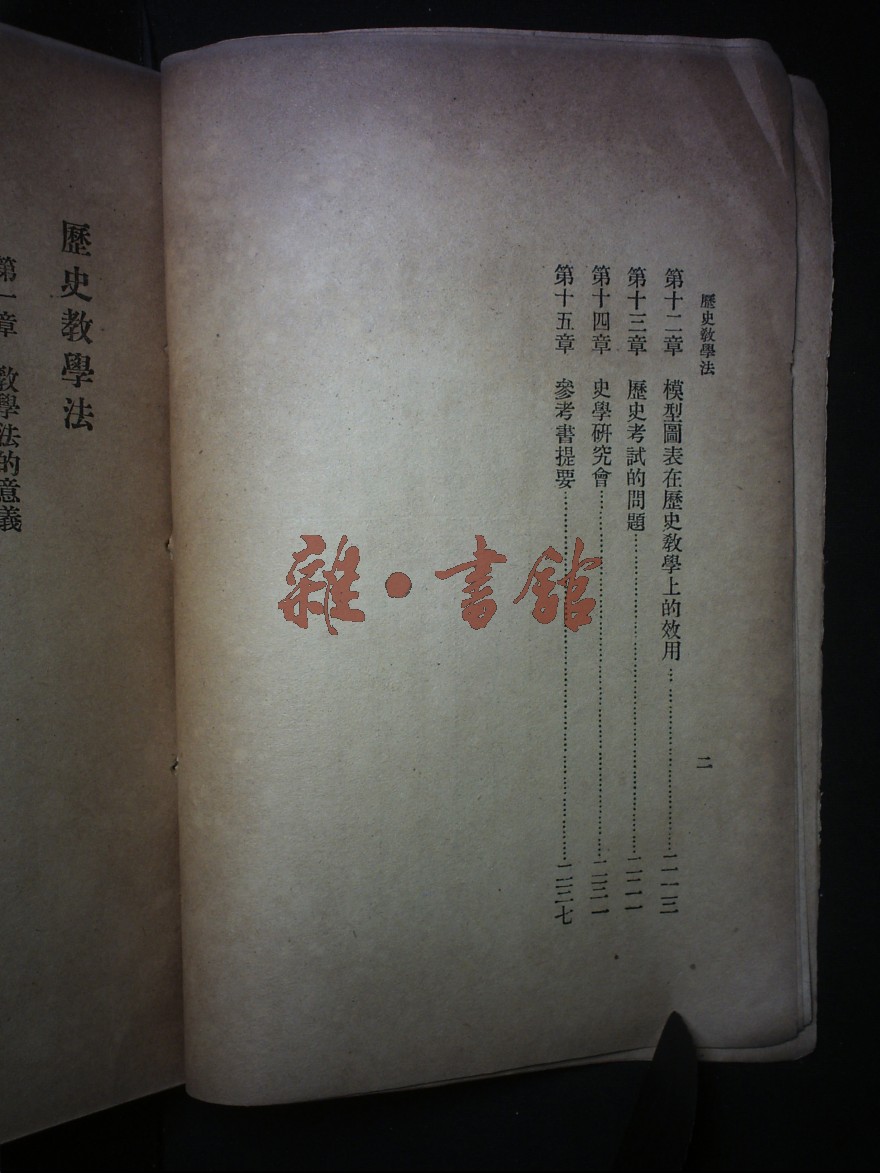 歷史敎學法
二
第十二章 模型圖表在歷史敎學上的效用…………………二一三
第十三章 歷史考試的問題…………………二二一
第十四章 史學研究會…………………二三一
第十五章 參考書提要…………………二三七
歷史敎學法
第一章 敎學法的意義
雜·書館